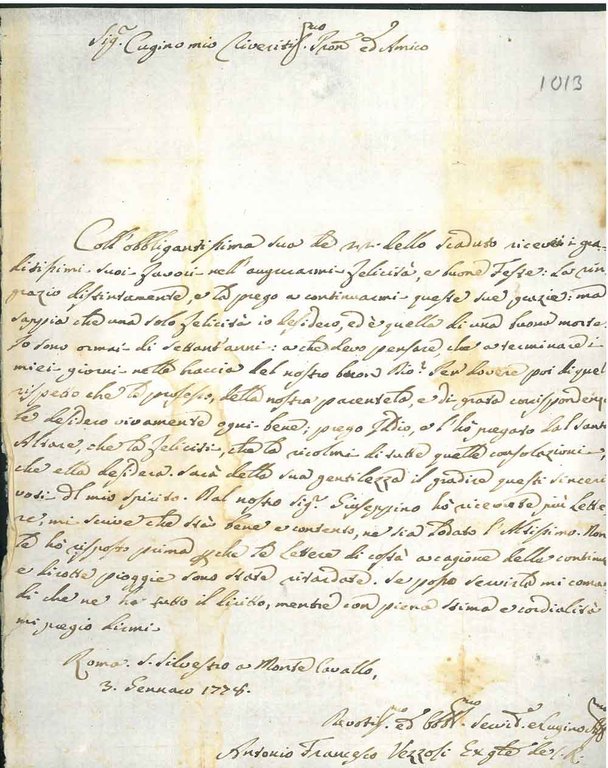 Sig.r Cugino mio Riveritiss.mo Pron.e ed Amico
1013
Coll'obbligantissima sua de dello scaduto ricevei i gra-
ditissimi suoi favori nell'augurarmi felicità, e buone Feste: La rin
grazio distintamente, e la prego a continuarmi queste sue grazie: ma
sappia che una sola felicità io desidero, ed è quella di una buona morte.
Io sono ormai di settant'anni: a che devo pensare, che a terminare i
miei giorni nella traccia del nostro buon Dio? Per dovere poi di quel
rispetto che le professo, della nostra parentela, e di grata corrispondenza
le desidero vivamente ogni bene; prego Iddio, e l'hò pregato dal Santo
Altare, che la feliciti, che la ricolmi di tutte quelle consolazioni,
che ella desidera. Sarà della sua gentilezza il gradire questi sinceri
voti del mio spirito. Dal nostro Sig.r Giuseppino hò ricevute più lette
re, mi scrive che stà bene e contento, ne sia lodato l'Altissimo. Non
le hò risposto prima perche le lettere di costà a cagione delle continue
e dirotte pioggie sono state ritardate. Se posso servirla mi coman
di che ne ha tutto il diritto, mentre con piena stima e cordialità
mi pregio dirmi
Roma. S. Silvestro a Monte Cavallo,
3. Gennaro 1778.
Devotis.mo ed Obbl.mo Servid.e e Cugino
Antonio Francesco Vezzosi Ex Gle de C. R.